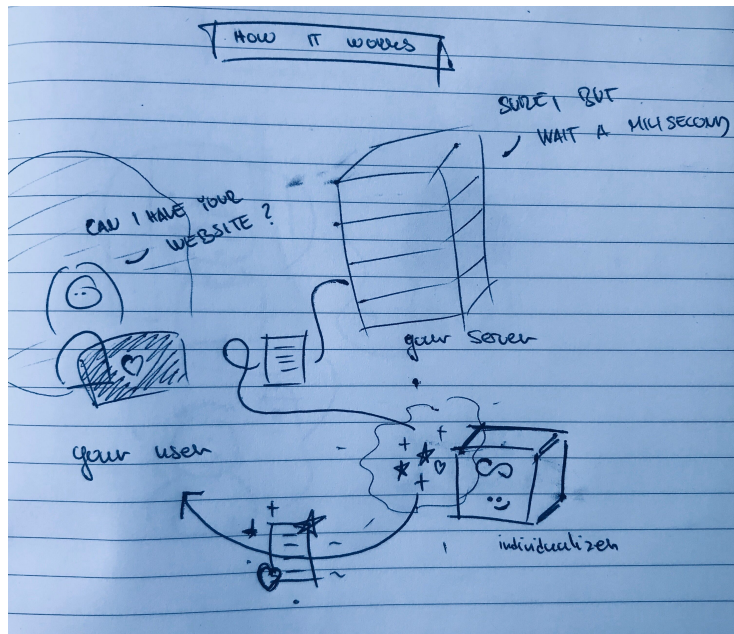 HOW IT WORKS
SURE, BUT
WAIT A MILISECOND
CAN I HAVE YOUR
WEBSITE ?
your server
your user
individualizer